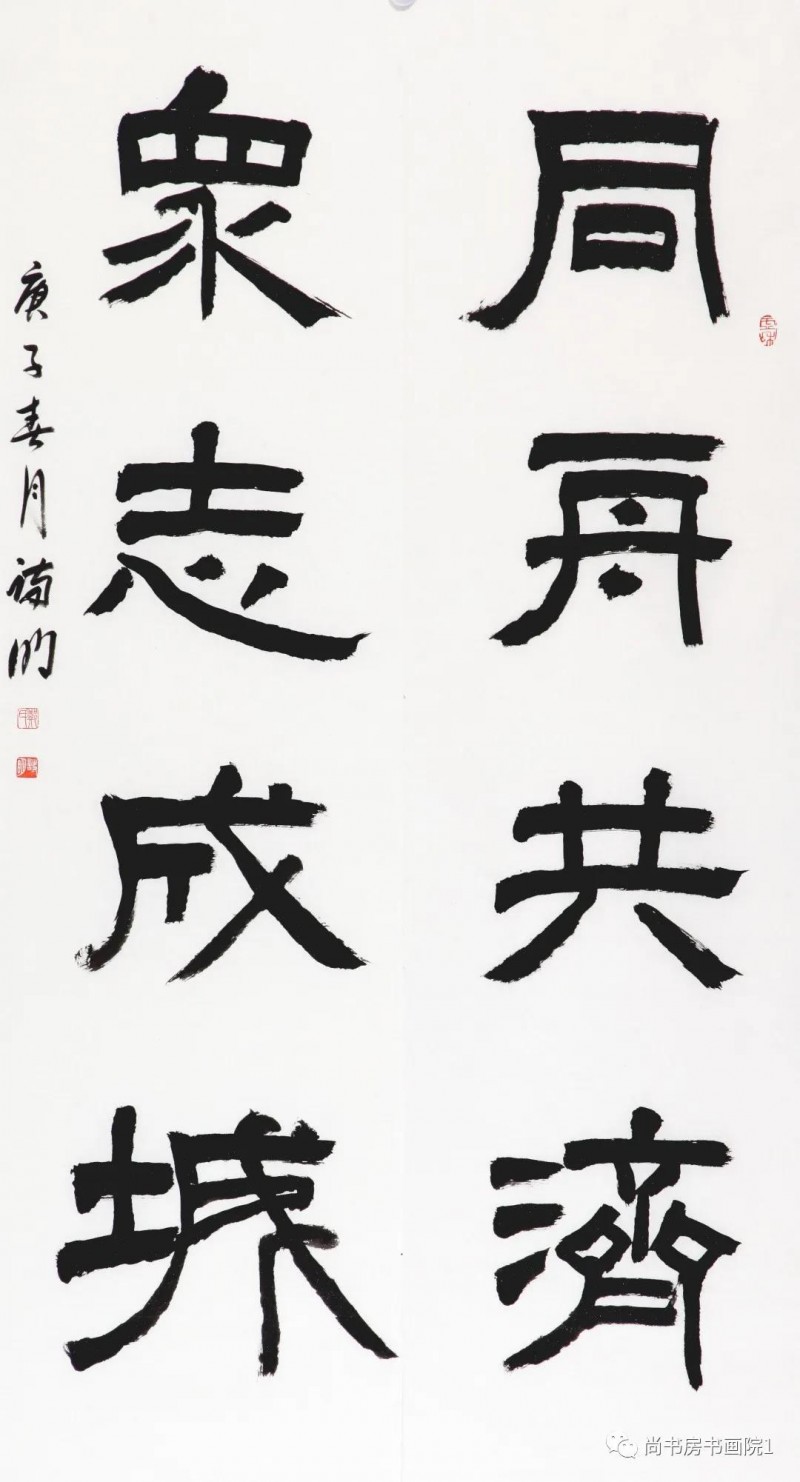 同舟共濟
眾志成城
庚子春月
尚书房书画院1